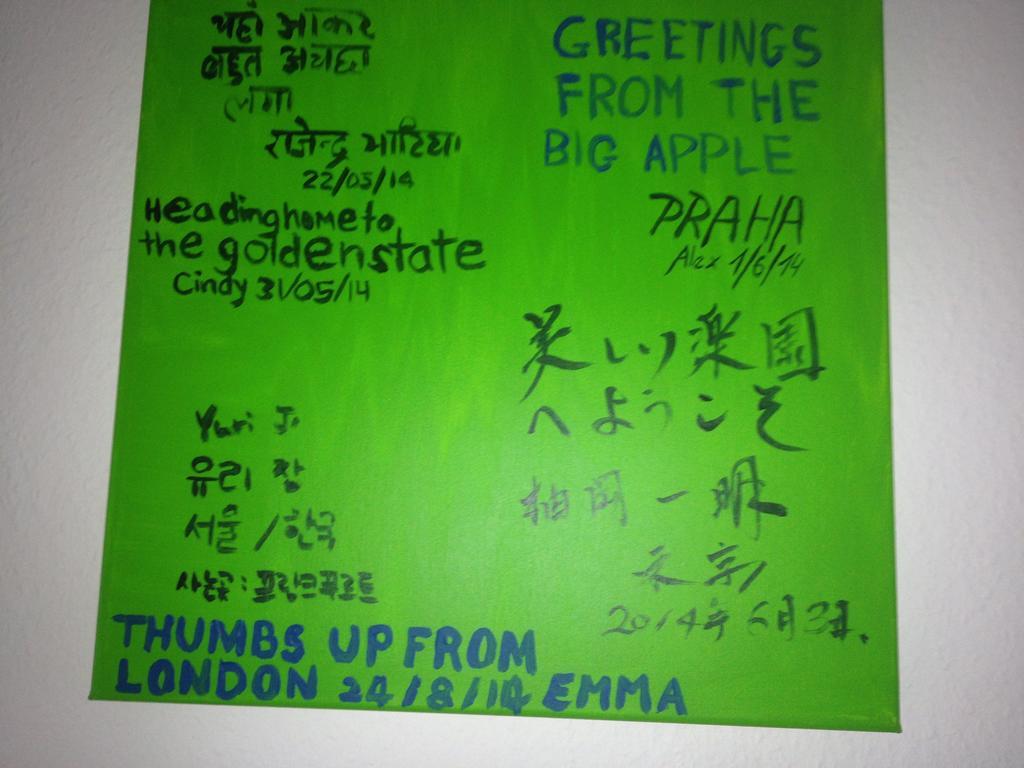 यहाँ आकर
बहुत अच्छा
लगा
राजेन्द्र भाटिया
22/05/14
GREETINGS
FROM THE
BIG APPLE
Heading home to
the golden state
Cindy 31/05/14
PRAHA
Alex 1/6/14
美しい楽園
へようこそ
柚岡 一明
東京
2014年6月3日.
Yuri J.
유리 장
서울 / 한국
사는곳: 프랑크푸르트
THUMBS UP FROM
LONDON 24/8/14 EMMA